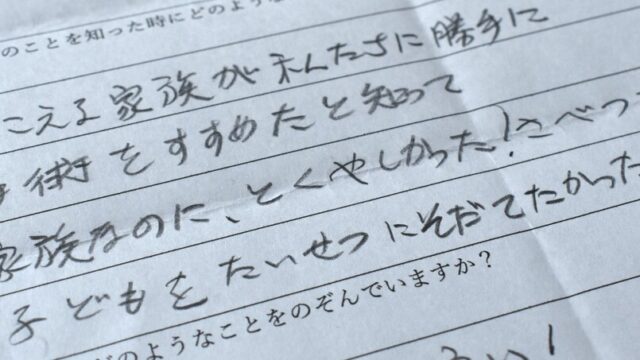 のことを知った時にどのような
こえる家族が私たちに勝手に
術をすすめたと知って
家族なのに、とくやしかった!さべつ
子どもをたいせつにそだてたかった
のようなことをのぞんでいますか?
い!